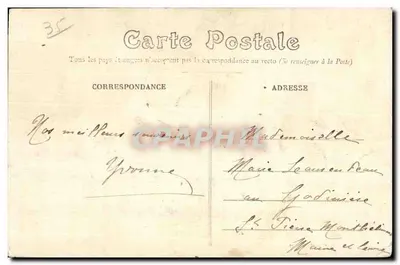 35
Carte Postale
Tous les pays étrangers n'acceptent pas la correspondance au recto (Se renseigner à la Poste)
CORRESPONDANCE
ADRESSE
Nos meilleurs souvenirs
Yvonne
Mademoiselle
Marie
au
St Pierre
Maine et Loire
CPAPHIL